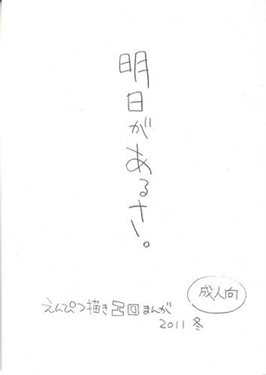 明日があるさー。
成人向
えんぴつ描き呂回まんが
2011 冬